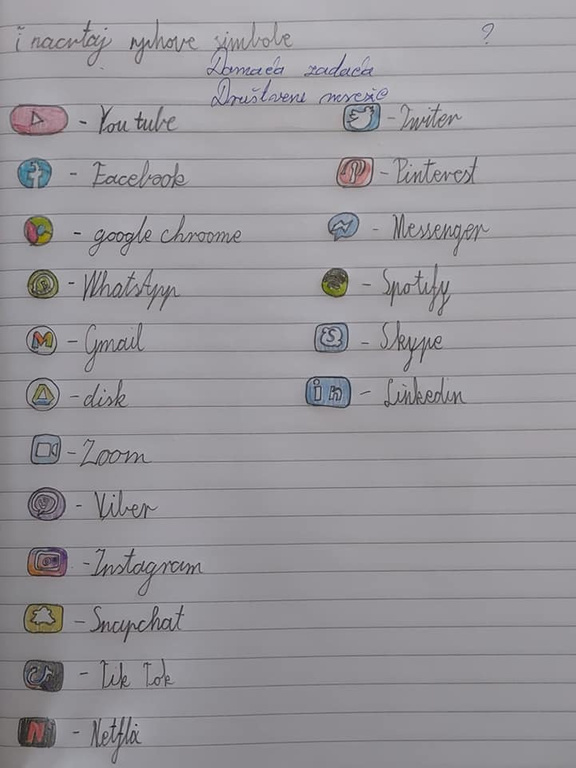 i nacrtaj njihove simbole ?
Domaća zadaća
Društvene mreže
- You tube
- Facebook
- google chroome
- WhatsApp
- Gmail
- disk
- Zoom
- Viber
- Instagram
- Snapchat
- Tik Tok
- Netflix
- Twiter
- Pinterest
- Messenger
- Spotify
- Skype
- Linkedin